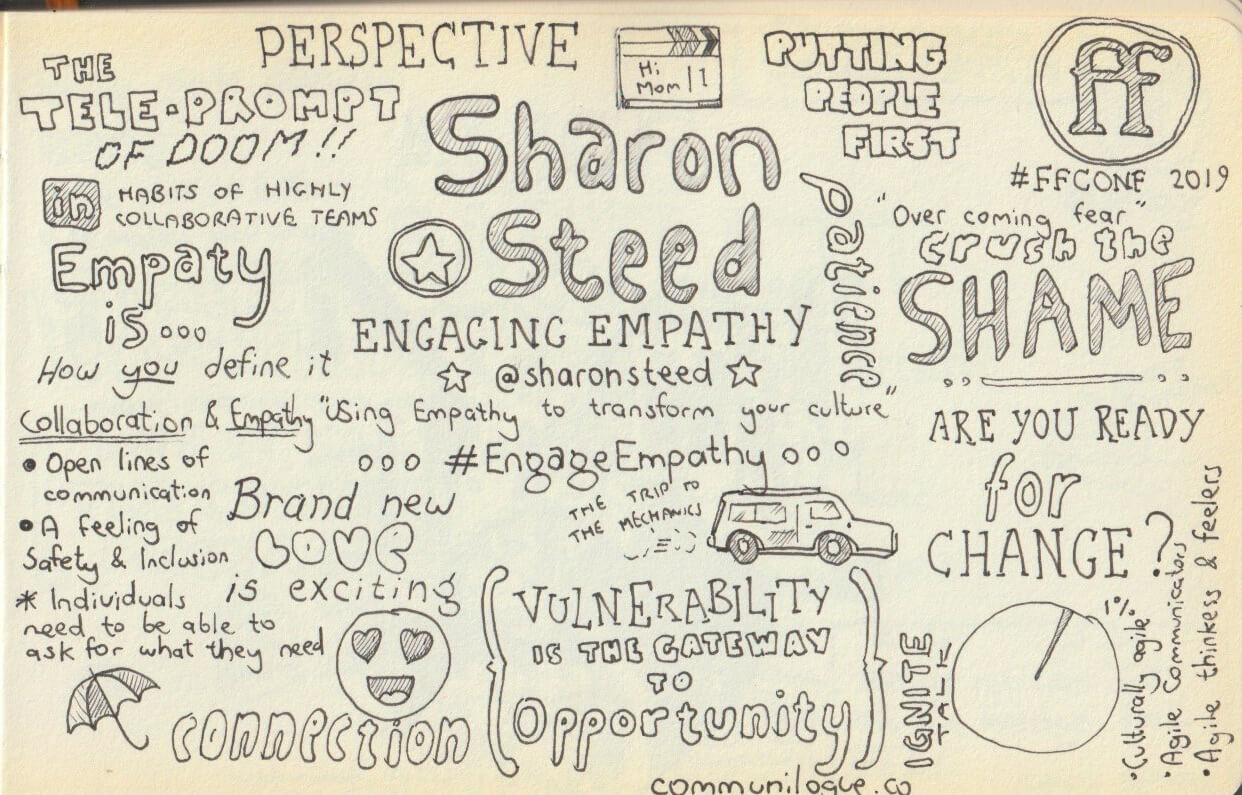 PERSPECTIVE
THE
TELE-PROMPT
OF DOOM!!
Hi
Mom 1
PUTTING
PEOPLE
FIRST
ff
#FFCONF 2019
Sharon
Steed
in HABITS OF HIGHLY
COLLABORATIVE TEAMS
Empaty
is...
How you define it
ENGAGING EMPATHY
@sharonsteed
patience
"Over coming fear"
Crush the
SHAME
Collaboration & Empathy
"Using Empathy to transform your culture"
#EngageEmpathy
• Open lines of
communication
• A feeling of
Safety & Inclusion
* Individuals
need to be able to
ask for what they need
Brand new
LOVE
is exciting
THE TRIP TO
THE MECHANICS
ARE YOU READY
for
CHANGE?
connection
VULNERABILITY
IS THE GATEWAY
TO
Opportunity
IGNITE
TALK
1%
• Culturally agile
• Agile Communicators
• Agile thinkess & feelers
communilogue.co